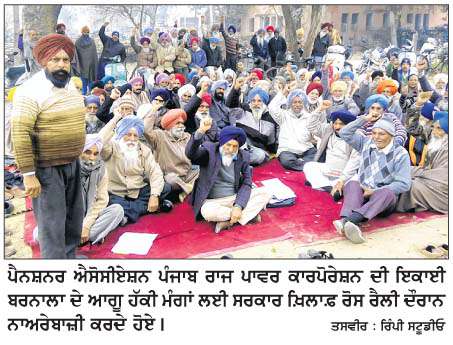 ਪੈਨਸ਼ਨਰ ਐਸੋਸੀਏਸ਼ਨ ਪੰਜਾਬ ਰਾਜ ਪਾਵਰ ਕਾਰਪੋਰੇਸ਼ਨ ਦੀ ਇਕਾਈ
ਬਰਨਾਲਾ ਦੇ ਆਗੂ ਹੱਕੀ ਮੰਗਾਂ ਲਈ ਸਰਕਾਰ ਖ਼ਿਲਾਫ਼ ਰੋਸ ਰੈਲੀ ਦੌਰਾਨ
ਨਾਅਰੇਬਾਜ਼ੀ ਕਰਦੇ ਹੋਏ।
ਤਸਵੀਰ : ਰਿੰਪੀ ਸਟੂਡੀਓ